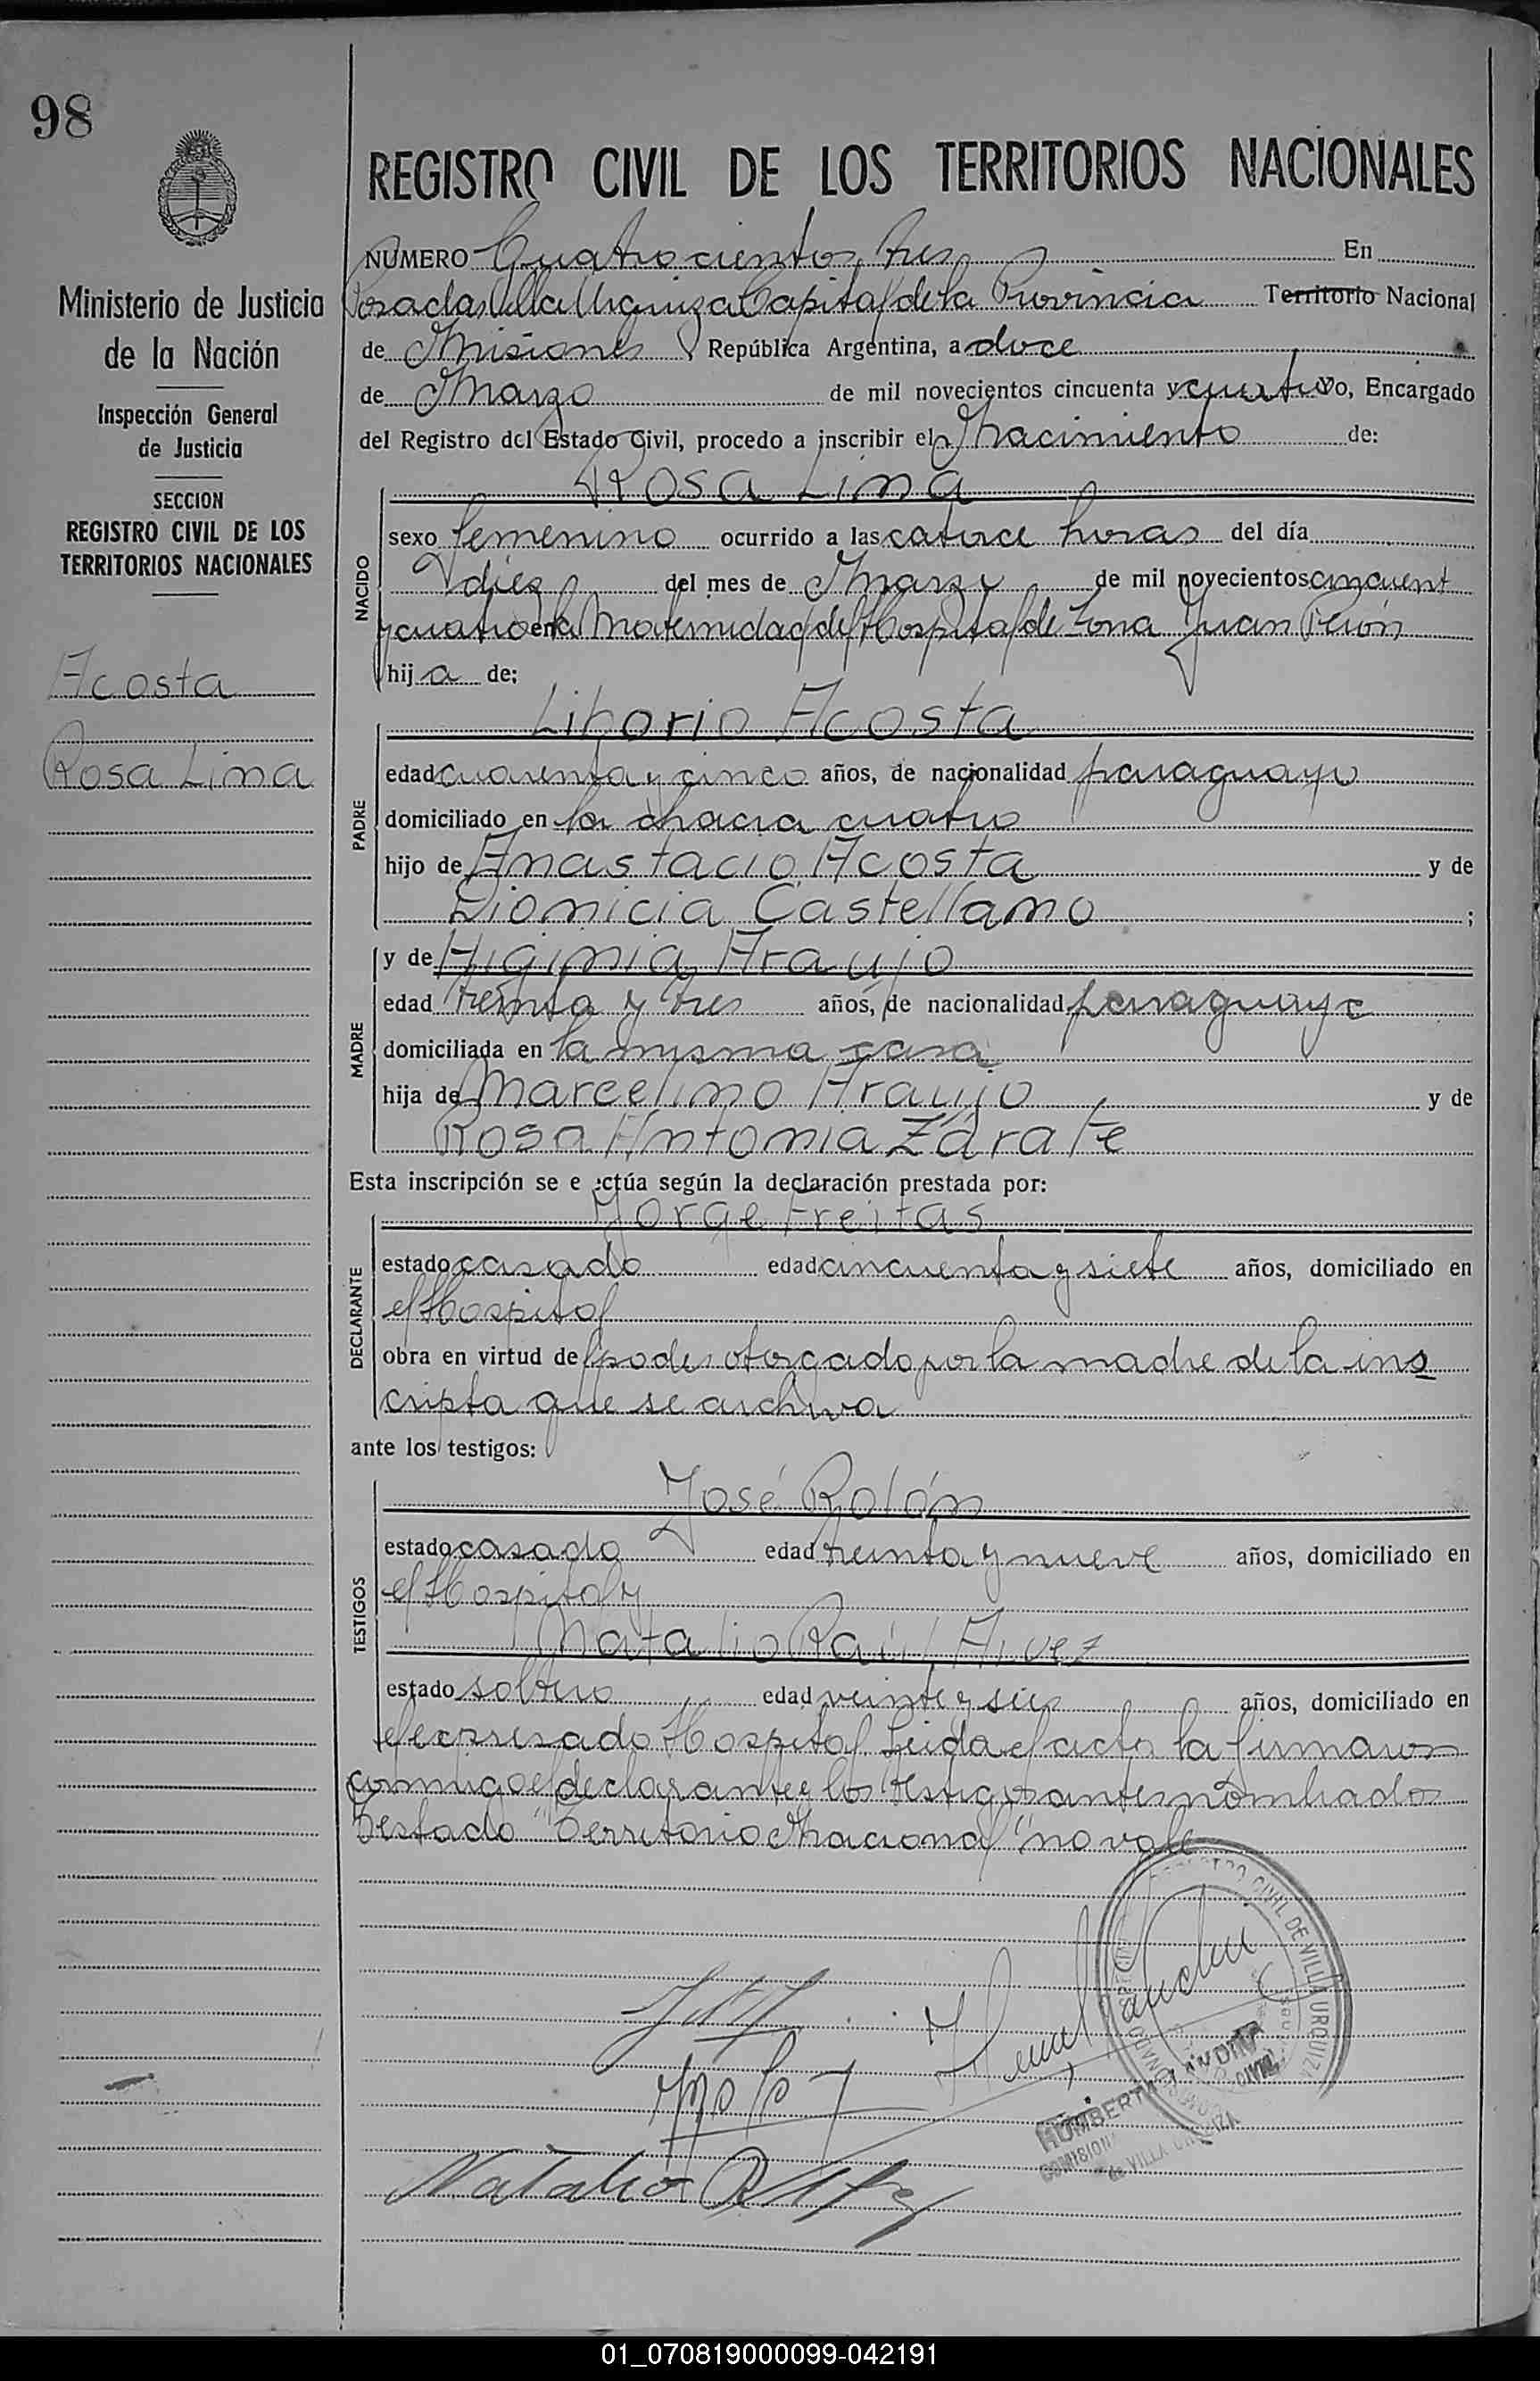 98
REGISTRO CIVIL DE LOS TERRITORIOS NACIONALES
Ministerio de Justicia
de la Nación
Inspección General
de Justicia
SECCION
REGISTRO CIVIL DE LOS
TERRITORIOS NACIONALES
Acosta
Rosa Lina
NUMERO Cuatrocientos tres En
Posadas Villa Urquiza Capital de la Provincia Territorio Nacional
de Misiones República Argentina, a doce
de Marzo de mil novecientos cincuenta y cuatro Yo, Encargado
del Registro del Estado Civil, procedo a inscribir el Nacimiento de:
NACIDO
Rosa Lina
sexo femenino ocurrido a las catorce horas del día
diez del mes de Marzo de mil novecientos cincuent
y cuatro en la Maternidad del Hospital de Zona Juan Perón
hij a de:
PADRE
Liborio Acosta
edad cuarenta y cinco años, de nacionalidad paraguayo
domiciliado en la chacra cuatro
hijo de Anastacio Acosta y de
Dionicia Castellano ;
MADRE
y de Higinia Araujo
edad treinta y tres años, de nacionalidad paraguaya
domiciliada en la misma casa
hija de Marcelino Araujo y de
Rosa Antonia Zárate
Esta inscripción se e ectúa según la declaración prestada por:
DECLARANTE
Jorge Freitas
estado casado edad cincuenta y siete años, domiciliado en
el Hospital
obra en virtud del poder otorgado por la madre de la ins
cripta que se archiva
ante los testigos:
TESTIGOS
José Rolón
estado casado edad treinta y nueve años, domiciliado en
el Hospital y
Natalio Raúl Alvez
estado soltero edad veinte y seis años, domiciliado en
el expresado Hospital Leida el acta la firmaron
conmigo el declarante y los testigos antes nombrados
Testado "Territorio Nacional" no vale
REGISTRO CIVIL DE VILLA URQUIZA
Natalio R Alvez
01_070819000099-042191